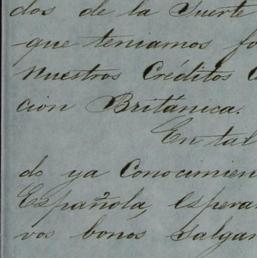 dos de la Suerte
que teniamos fo
Nuestros Créditos C
cion Británica.
En tal
do ya Conocimien
Española, Espera
vos bonos Salgan